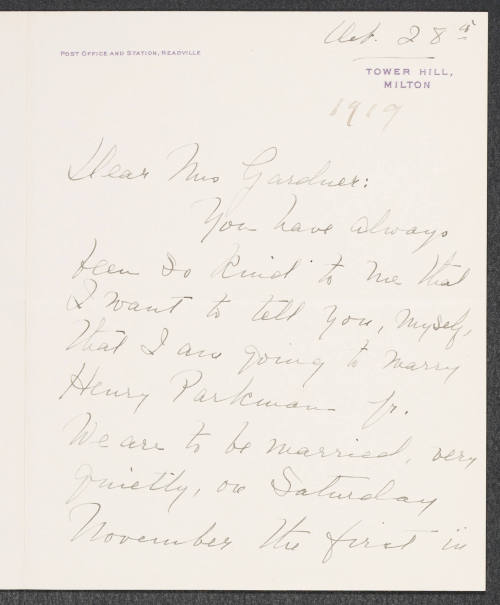 Oct. 28th
POST OFFICE AND STATION, READVILLE
TOWER HILL,
MILTON
1919
Dear Mrs Gardner:
You have always
been so kind to me that
I want to tell you, myself,
that I am going to marry
Henry Parkman Jr.
We are to be married, very
quietly, on Saturday
November the first in